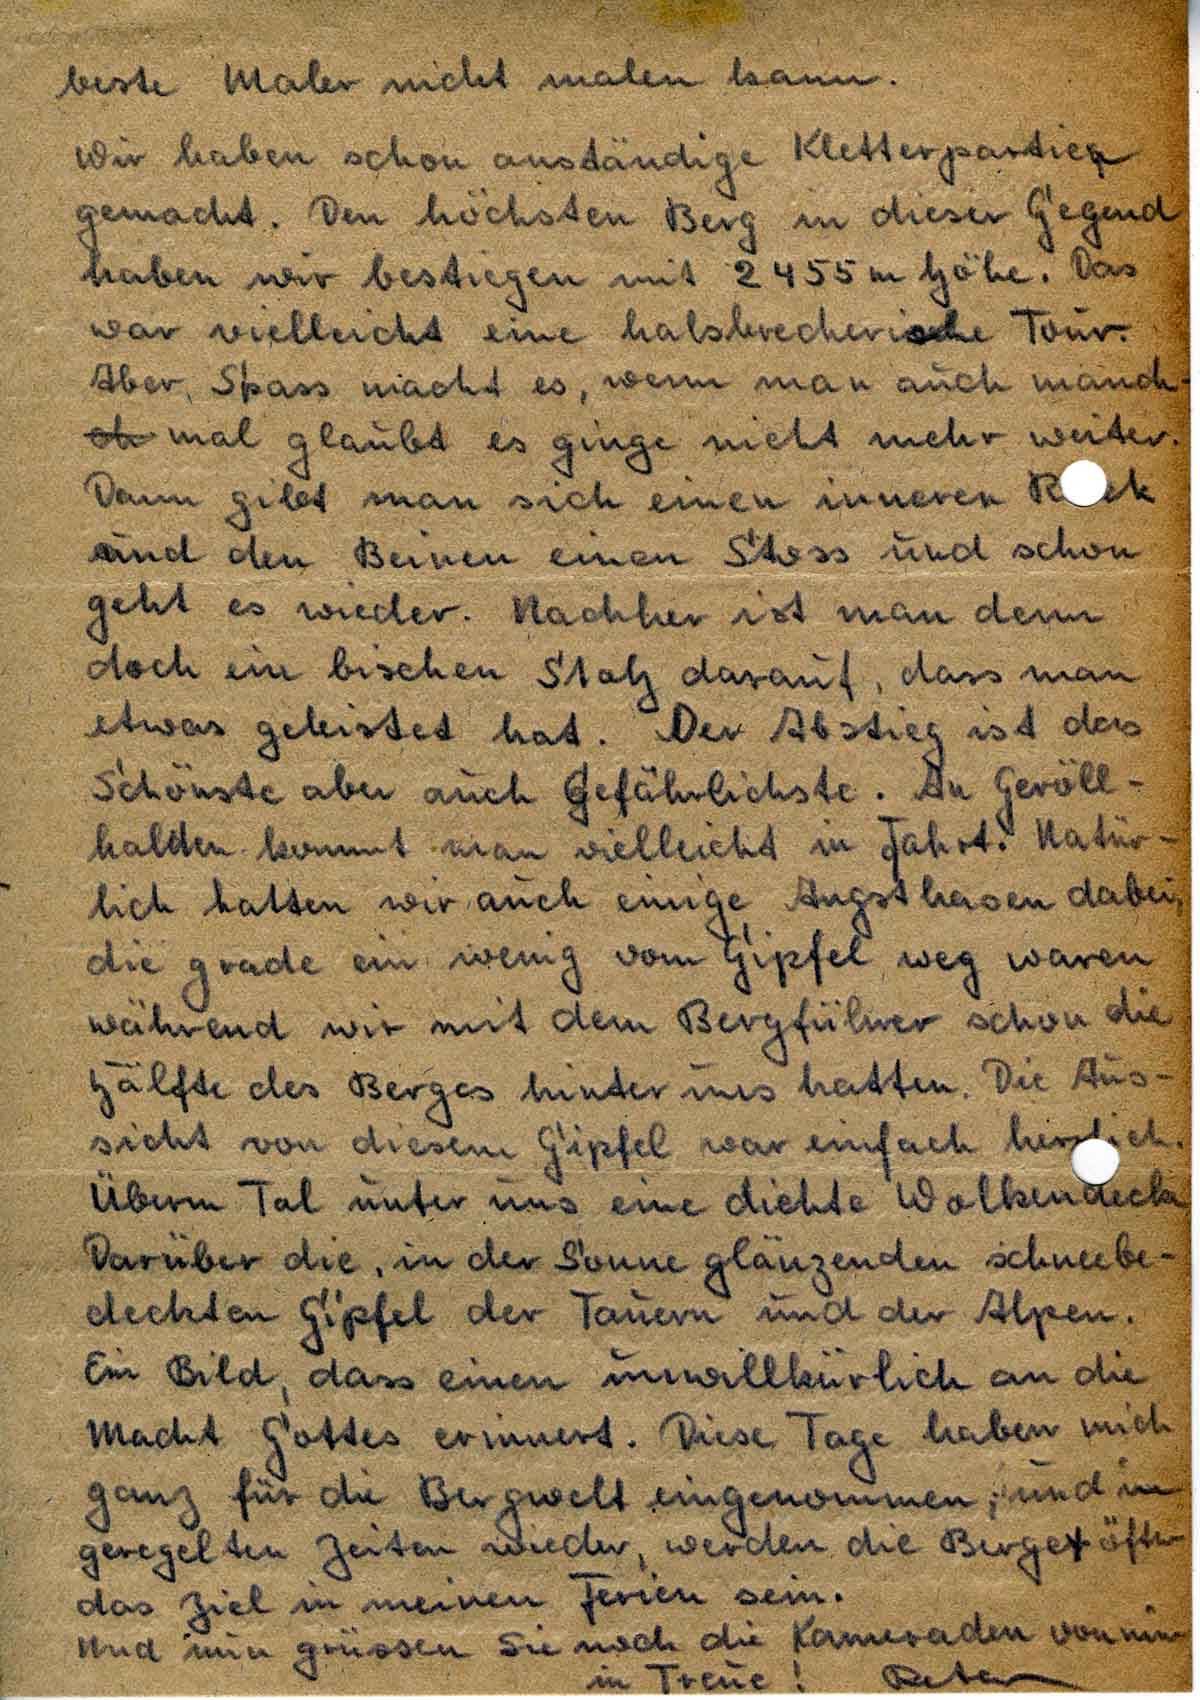 beste Maler nicht malen kann.
Wir haben schon anständige Kletterpartien
gemacht. Den höchsten Berg in dieser Gegend
haben wir bestiegen mit 2455 m Höhe. Das
war vielleicht eine halsbrecherische Tour.
Aber, Spass macht es, wenn man auch manch-
mal glaubt es ginge nicht mehr weiter.
Dann gibt man sich einen inneren R ck
und den Beinen einen Stoss und schon
geht es wieder. Nachher ist man denn
doch ein bischen Stolz darauf, dass man
etwas geleistet hat. Der Abstieg ist das
Schönste aber auch Gefährlichste. An Geröll-
halden kommt man vielleicht in Fahrt! Natür-
lich hatten wir auch einige Angsthasen dabei,
die grade ein wenig vom Gipfel weg waren
während wir mit dem Bergführer schon die
Hälfte des Berges hinter uns hatten. Die Aus-
sicht von diesem Gipfel war einfach herrlich.
Überm Tal unter uns eine dichte Wolkendecke
Darüber die, in der Sonne glänzenden schneebe-
deckten Gipfel der Tauern und der Alpen.
Ein Bild, dass einen unwillkürlich an die
Macht Gottes erinnert. Diese Tage haben mich
ganz für die Bergwelt eingenommen, und in
geregelten Zeiten wieder, werden die Berge öfter
das Ziel in meinen Ferien sein.
Und nun grüssen Sie noch die Kameraden von mir
in Treue! Peter